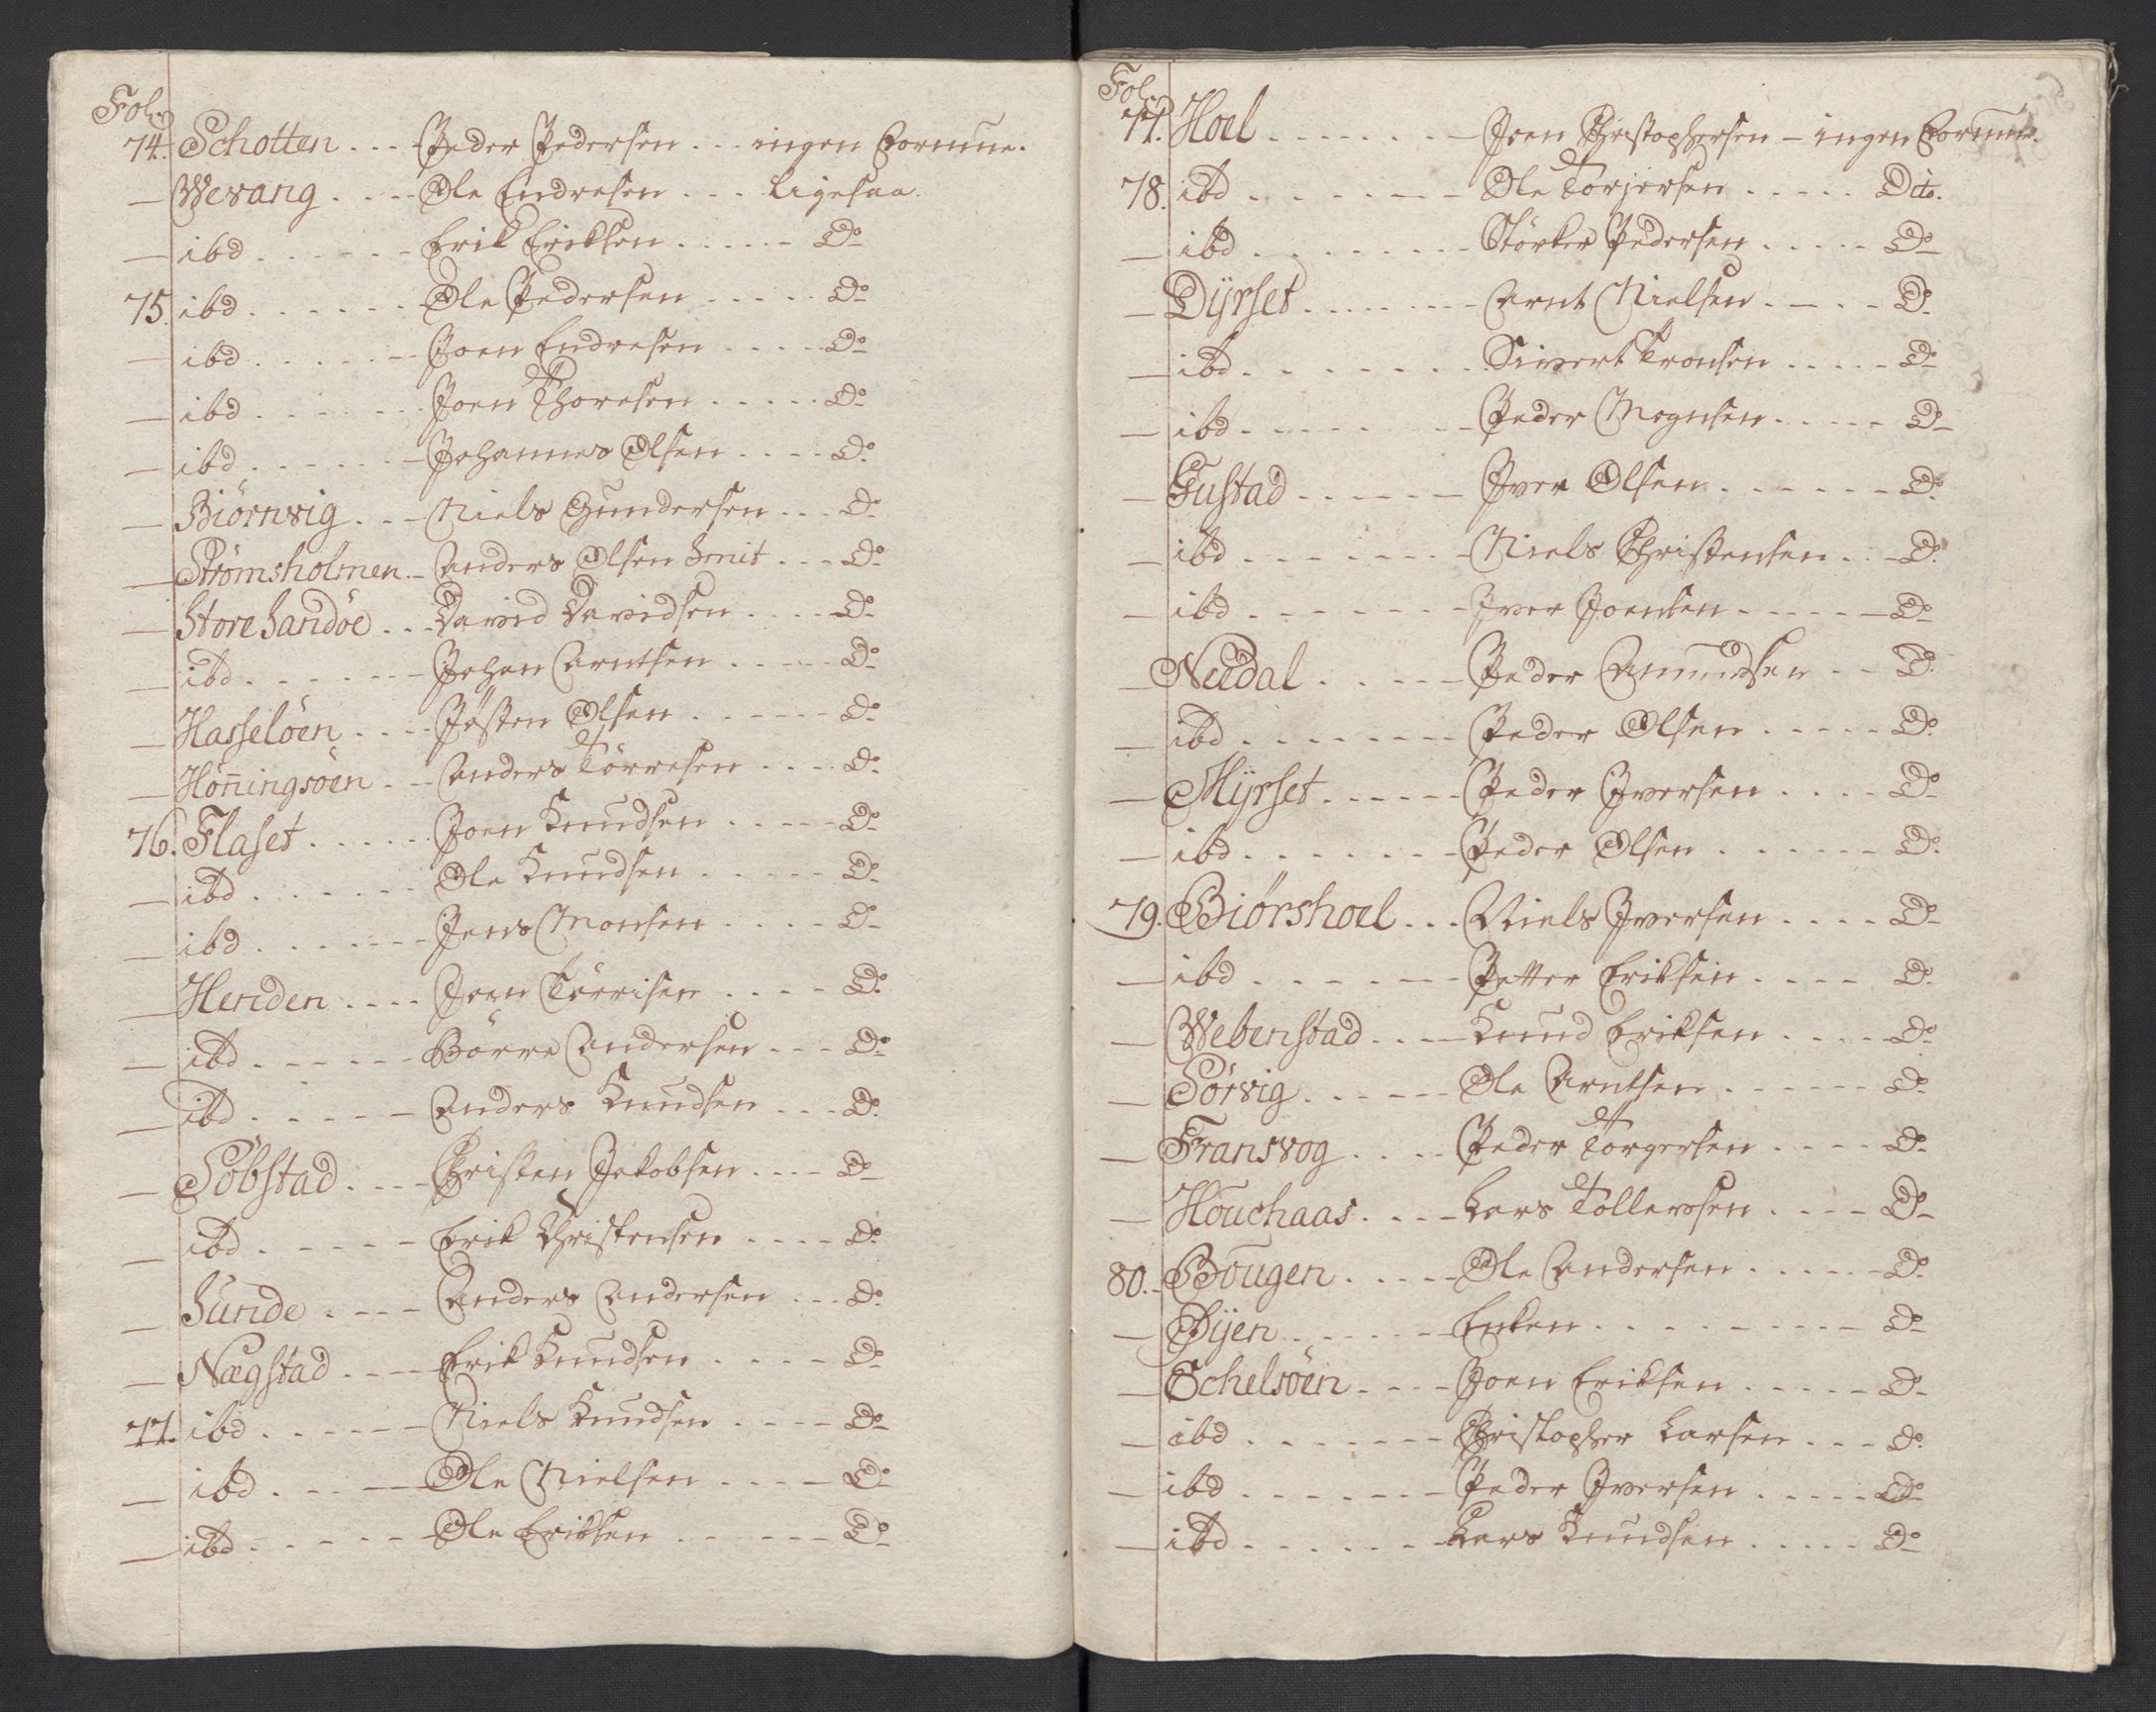 Fol.
74. Schotten ... Peder Pedersen ... ingen Formue.
— Wevang .... Ole Endresen ... ligesaa.
— ibd ...... Erik Eriksen ..... Do
75. ibd ...... Ole Pedersen ..... Do
— ibd ...... Joen Endresen .... Do
— ibd ...... Joen Thoresen ..... Do
— ibd ...... Johannes Olsen .... Do
— Biörnvig ... Niels Gundersen ... Do
— Strömsholmen .. Anders Olsen Smit ... Do
— Store Sandöe ... David Davidsen .... Do
— ibd ...... Johan Arntsen ..... Do
— Hasselöen .... Jösten Olsen ...... Do
— Hon̄ingsöen ... Anders Törresen .... Do
76. Flaset ...... Joen Knudsen ..... Do
— ibd ...... Ole Knudsen ..... Do
— ibd ...... Jens Monsen .... Do
— Henden .... Joen Törrisen .... Do
— ibd ...... Börre Andersen ... Do
— ibd ..... Anders Knudsen ... Do
— Söbstad .... Christen Jakobsen .... Do
— ibd ..... Erik Christensen .... Do
— Sunde .... Anders Andersen ... Do
— Nægstad .... Erik Knudsen .... Do
77. ibd ...... Niels Knudsen .... Do
— ibd ..... Ole Nielsen .... Do
— ibd ..... Ole Eriksen ...... Do
Fol.
77. Hoel ....... Joen Christophersen – ingen Formue.
78. ibd ....... Ole Torjersen ..... Dito.
— ibd ........ Störker Pedersen ..... Do
— Dÿrset ....... Arnt Nielsen .... Do
— ibd ........ Sivert Tronsen ..... Do
— ibd ........ Peder Mognsen ..... Do
— Gustad ...... Iver Olsen ...... Do
— ibd ....... Niels Christensen ... Do
— ibd ....... Iver Joensen ...... Do
— Neudal ..... Peder Amundsen .. Do
— ibd ........ Peder Olsen ..... Do
— Mÿrset ...... Peder Iversen .... Do
— ibd ....... Peder Olsen ...... Do
79. Biörshoel ... Niels Iversen .... Do
— ibd ....... Petter Eriksen .... Do
— Webenstad .... Knud Eriksen .... Do
— Sörvig ...... Ole Arntsen ...... Do
— Fransvog .... Peder Torgersen .... Do
— Houchaas .... Lars Tollevsen .... Do
80. Bougen ..... Ole Andersen ..... Do
— Öÿen ...... Enken ......... Do
— Schelsöen .... Joen Eriksen ..... Do
— ibd ....... Christopher Larsen ... Do
— ibd ....... Peder Iversen ..... Do
— ibd ....... Lars Knudsen ..... Do